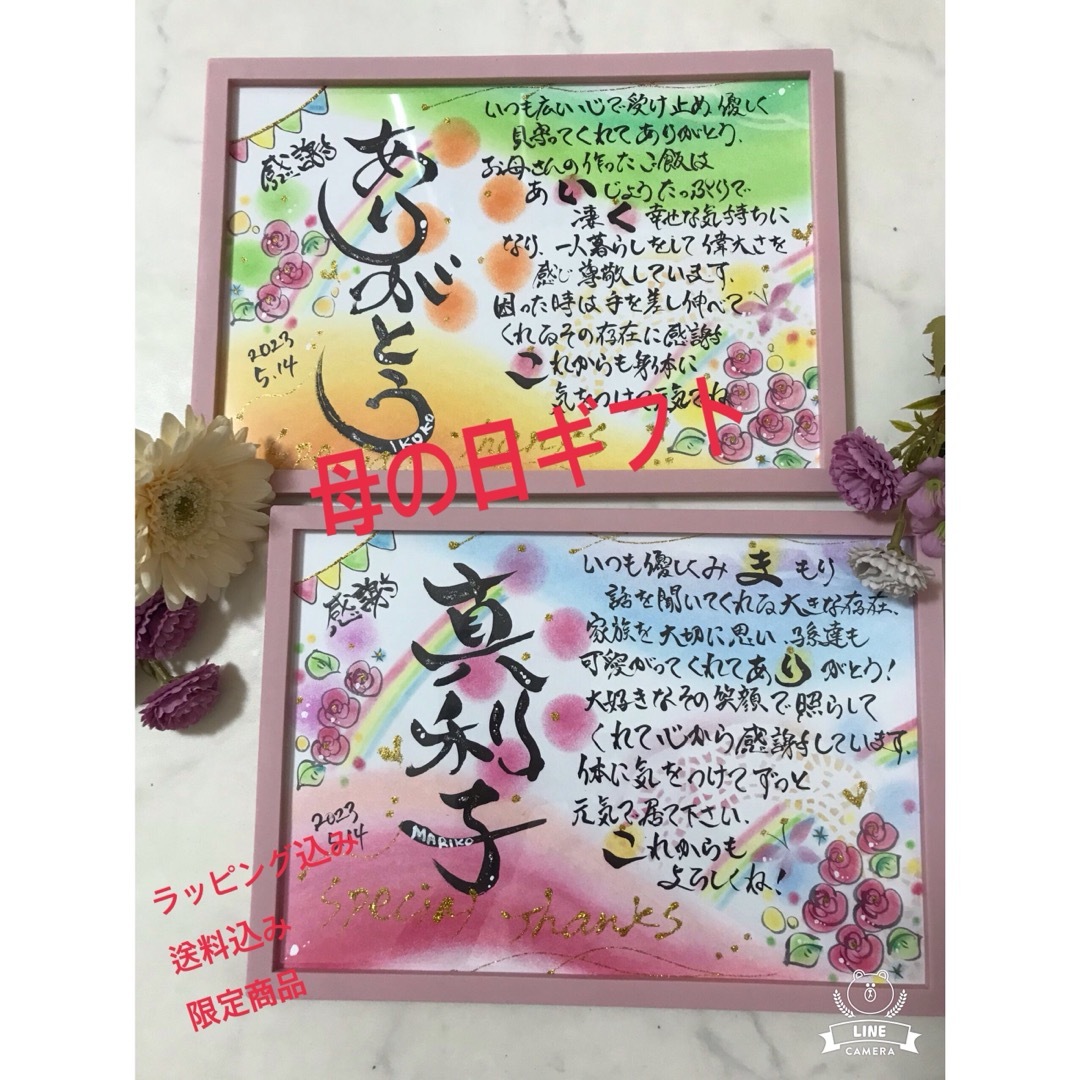 感謝を
ありがとう
IKOKO
2023
5.14
いつも広い心で受け止め優しく
見守ってくれてありがとう、
お母さんの作ったご飯は
あいじょうたっぷりで
凄く幸せな気持ちに
なり、一人暮らしをして偉大さを
感じ尊敬しています、
困った時は手を差し伸べて
くれるその存在に感謝を
これからも身体に
気をつけて元気でね
母の日ギフト
感謝を
真利子
MARIKO
2023
5.14
いつも優しくみまもり
話を聞いてくれる大きな存在、
家族を大切に思い、孫達も
可愛がってくれてありがとう!
大好きなその笑顔で照らして
くれて心から感謝をしています、
体に気をつけてずっと
元気で居て下さい、
これからも
よろしくね!
Special thanks
ラッピング込み
送料込み
限定商品
LINE
CAMERA